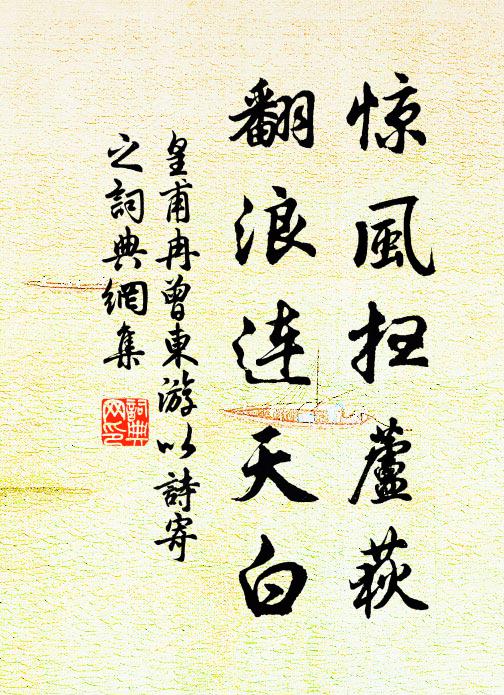 惊風扫蘆荻
翻浪连天白
皇甫冉曾東游以詩寄
之詞典網集
詞典网印